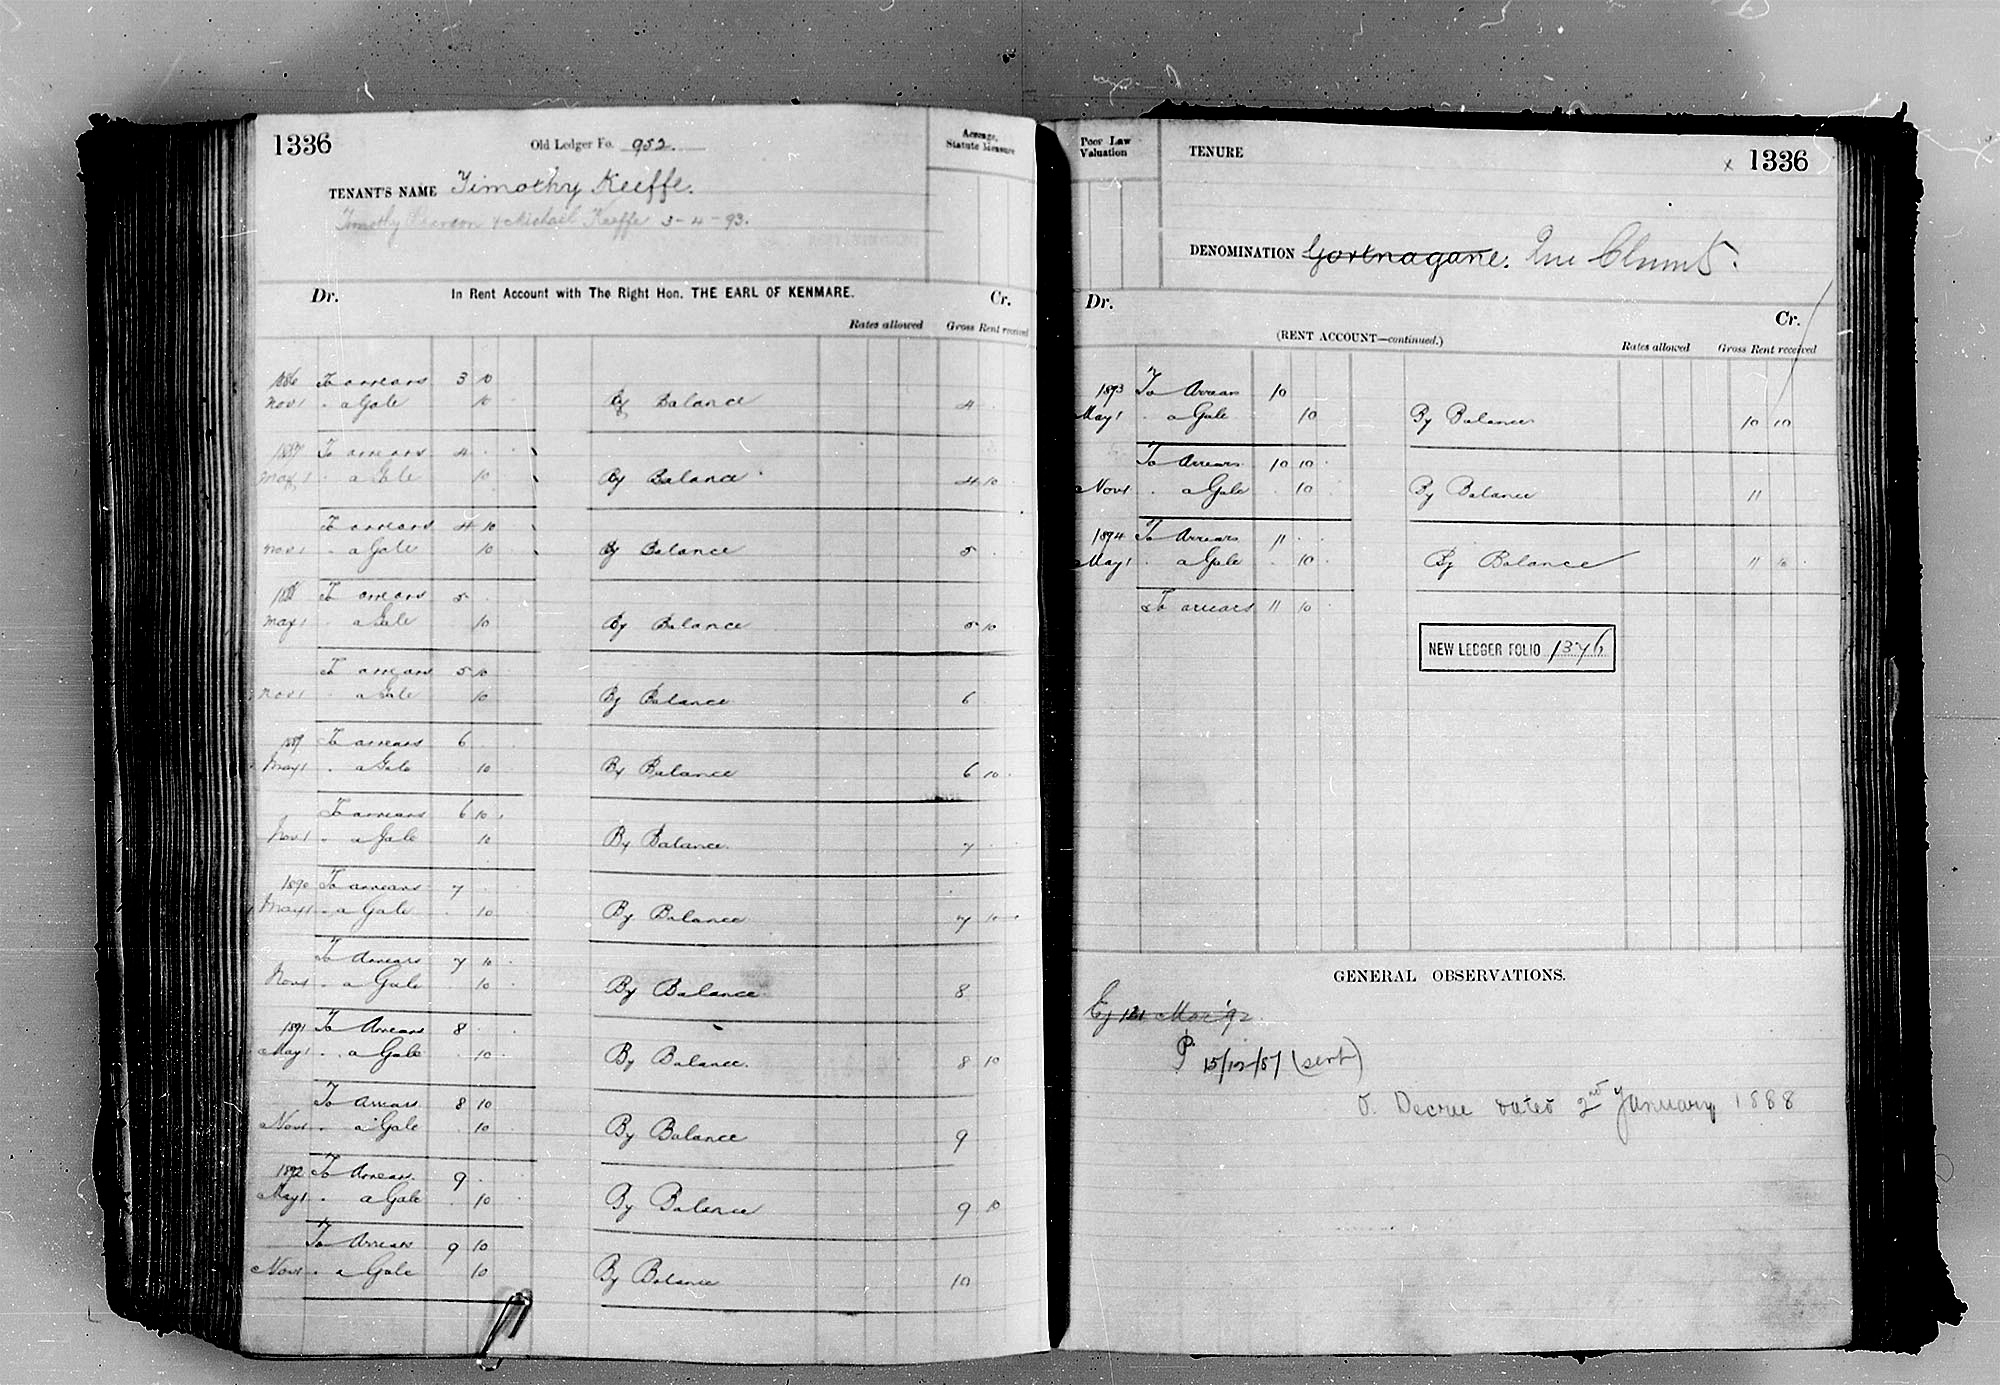 1336
Old Ledger Fo. 952.
Acreage, Statute Measure
TENANT'S NAME Timothy Keeffe.
Timothy & Michael Keeffe 3-4-93.
Dr. In Rent Account with The Right Hon. THE EARL OF KENMARE. Cr.
Rates allowed Gross Rent received
1886 To arrears 3 10
Nov 1 " a Gale 10 By Balance 4
1887 To arrears 4
May 1 " a Gale 10 By Balance 4 10
To arrears 4 10
Nov 1 " a Gale 10 By Balance 5
1888 To arrears 5
May 1 " a Gale 10 By Balance 5 10
To arrears 5 10
Nov 1 " a Gale 10 By Balance 6
1889 To arrears 6
May 1 " a Gale 10 By Balance 6 10
To arrears 6 10
Nov 1 " a Gale 10 By Balance 7
1890 To arrears 7
May 1 " a Gale 10 By Balance 7 10
To Arrears 7 10
Nov 1 " a Gale 10 By Balance 8
1891 To Arrears 8
May 1 " a Gale 10 By Balance 8 10
To Arrears 8 10
Nov 1 " a Gale 10 By Balance 9
1892 To Arrears 9
May 1 " a Gale 10 By Balance 9 10
To Arrears 9 10
Nov 1 " a Gale 10 By Balance 10
Poor Law Valuation
TENURE
x 1336
DENOMINATION Gortnagane.
Dr. Cr.
(RENT ACCOUNT—continued.)
Rates allowed Gross Rent received
1893 To Arrears 10
May 1 " a Gale 10 By Balance 10 10
To Arrears 10 10
Nov 1 " a Gale 10 By Balance 11
1894 To Arrears 11
May 1 " a Gale 10 By Balance 11 10
To arrears 11 10
NEW LEDGER FOLIO 1376
GENERAL OBSERVATIONS.
Ej Mar '92
P 15/12/87 (sent)
O. Decree dated 2nd January 1888